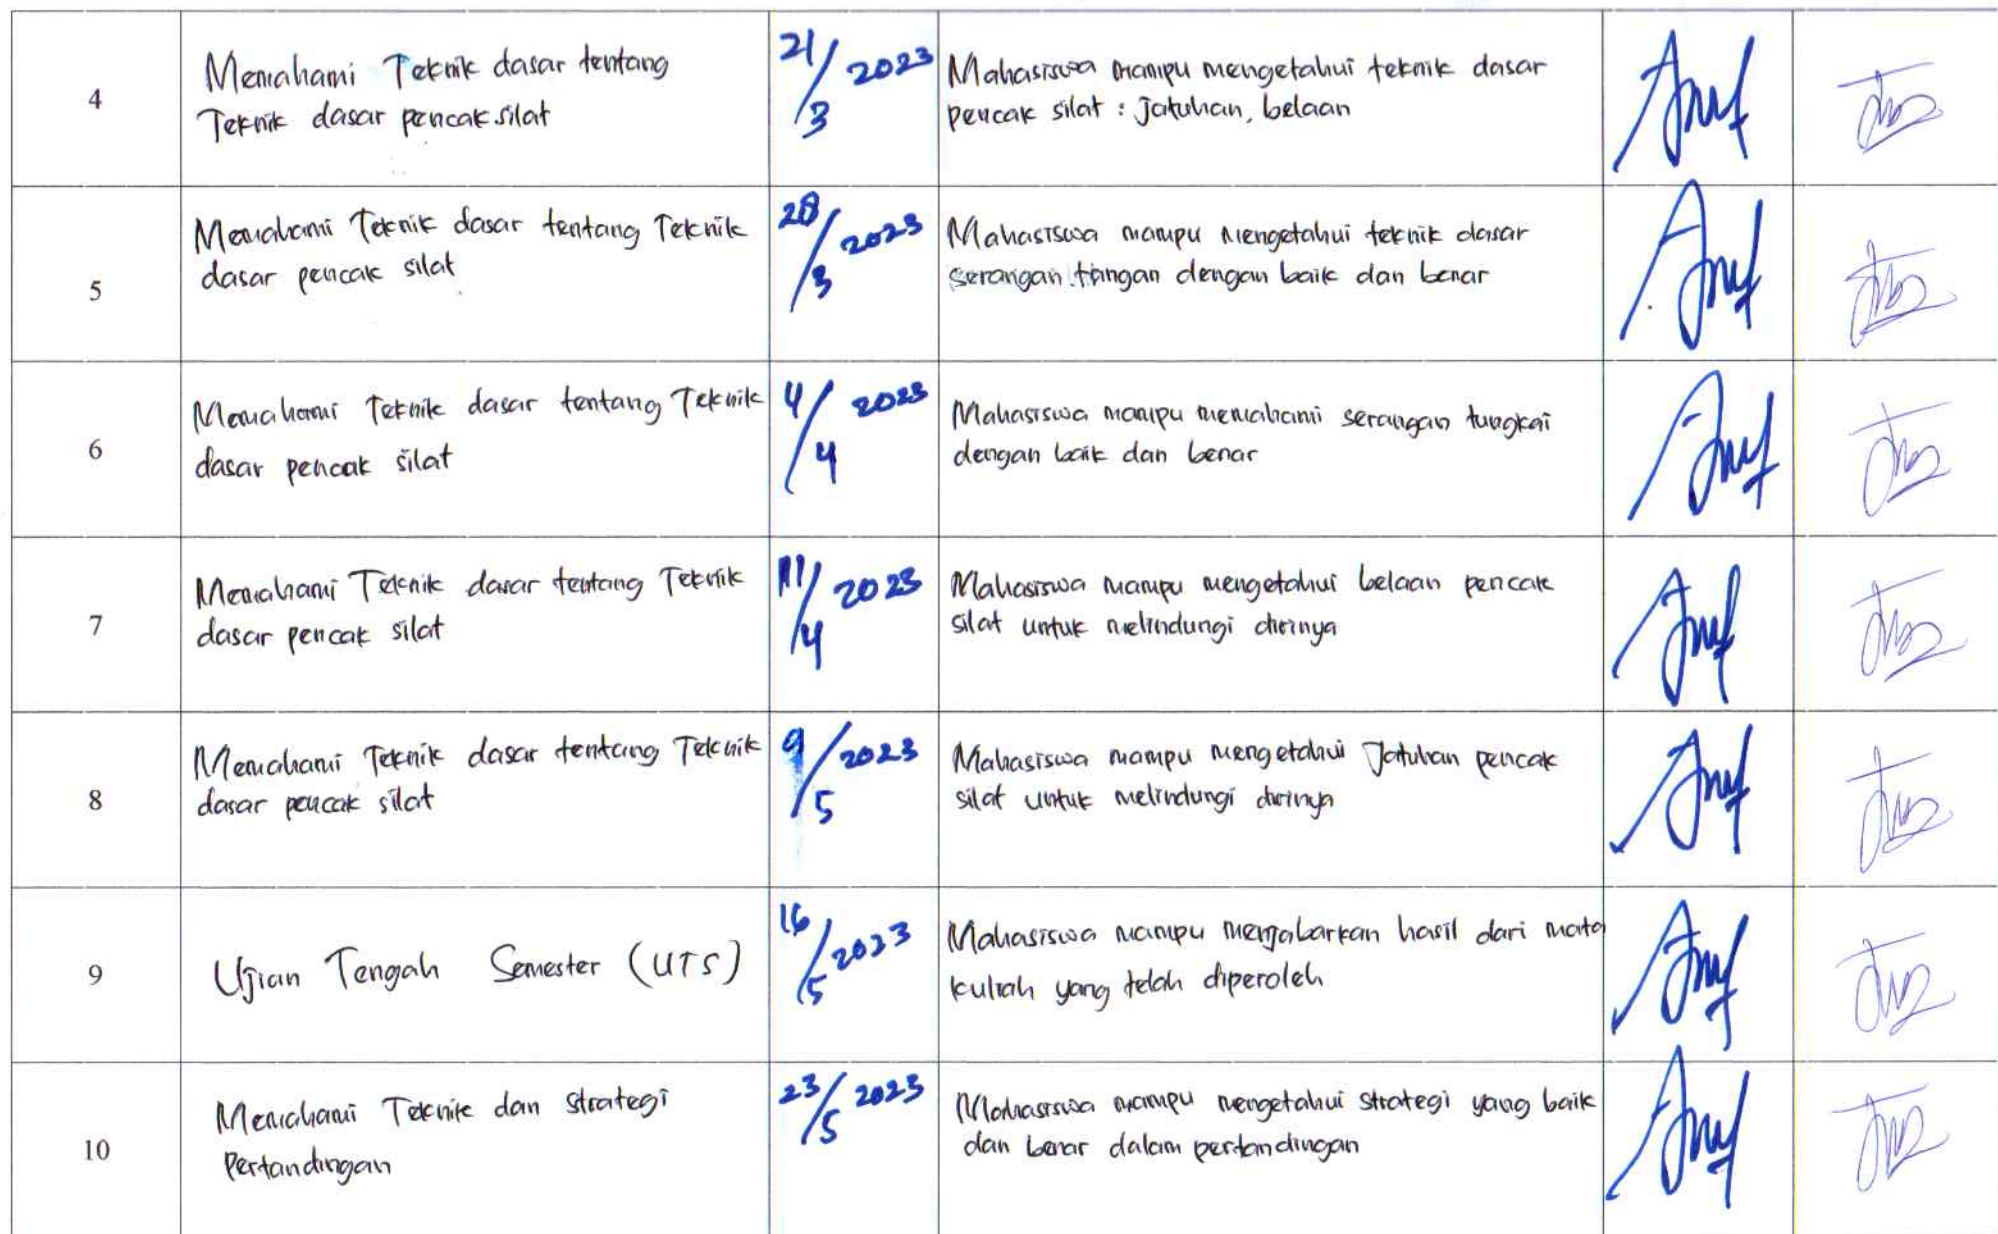 4
Memahami Teknik dasar tentang
Teknik dasar pencak silat
21/3 2023
Mahasiswa mampu mengetahui teknik dasar
pencak silat : Jatuhan, belaan
5
Memahami Teknik dasar tentang Teknik
dasar pencak silat
28/3 2023
Mahasiswa mampu mengetahui teknik dasar
serangan tangan dengan baik dan benar
6
Memahami Teknik dasar tentang Teknik
dasar pencak silat
4/4 2023
Mahasiswa mampu memahami serangan tungkai
dengan baik dan benar
7
Memahami Teknik dasar tentang Teknik
dasar pencak silat
11/4 2023
Mahasiswa mampu mengetahui belaan pencak
silat untuk melindungi dirinya
8
Memahami Teknik dasar tentang Teknik
dasar pencak silat
9/5 2023
Mahasiswa mampu mengetahui Jatuhan pencak
silat untuk melindungi dirinya
9
Ujian Tengah Semester (UTS)
16/5 2023
Mahasiswa mampu menjabarkan hasil dari mata
kuliah yang telah diperoleh
10
Memahami Teknik dan strategi
Pertandingan
23/5 2023
Mahasiswa mampu mengetahui strategi yang baik
dan benar dalam pertandingan